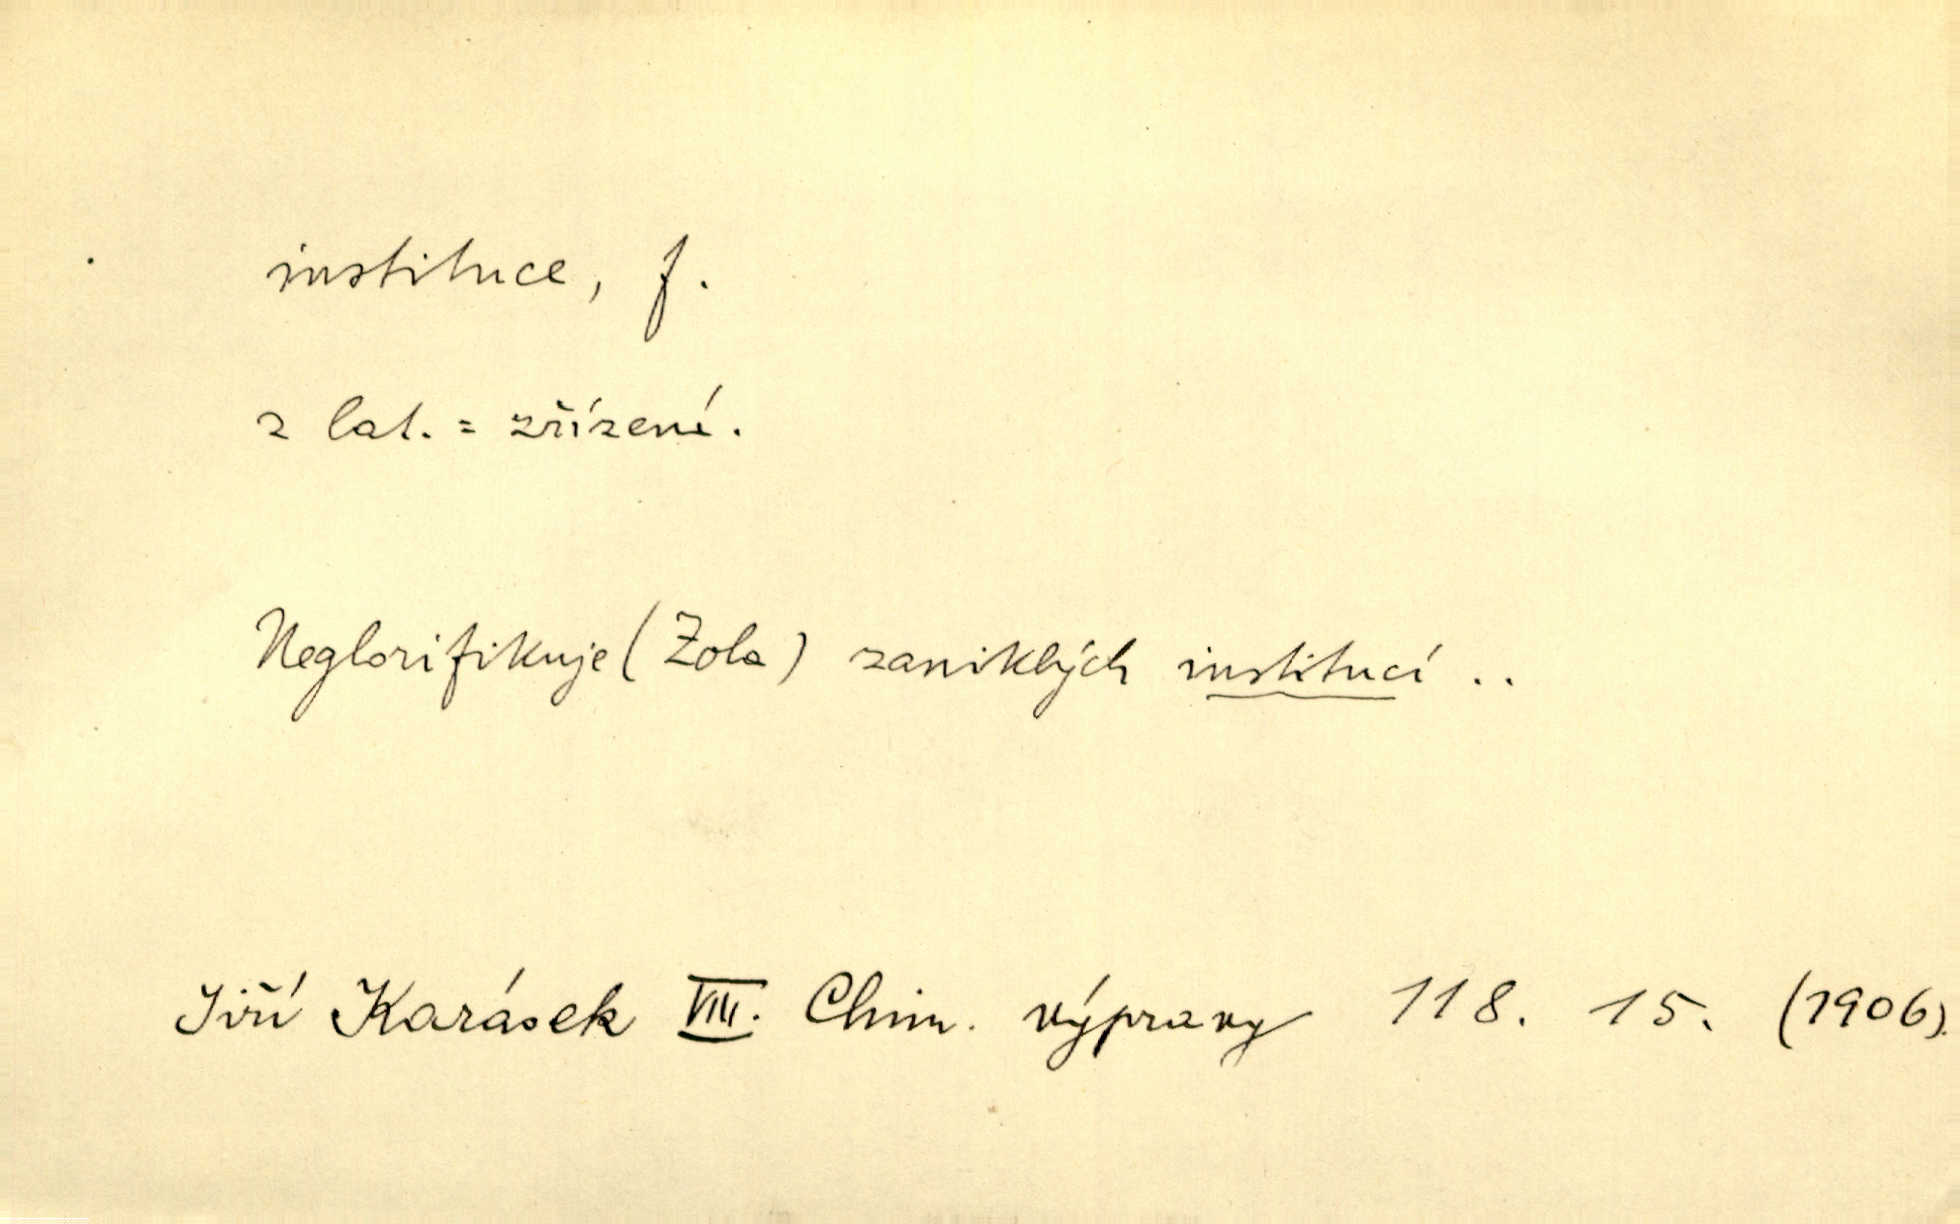 instituce, f.
z lat. = zřízení.
Neglorifikuje (Zola) zaniklých institucí ..
Jiří Karásek VIII. Chim. výpravy 118. 15. (1906).